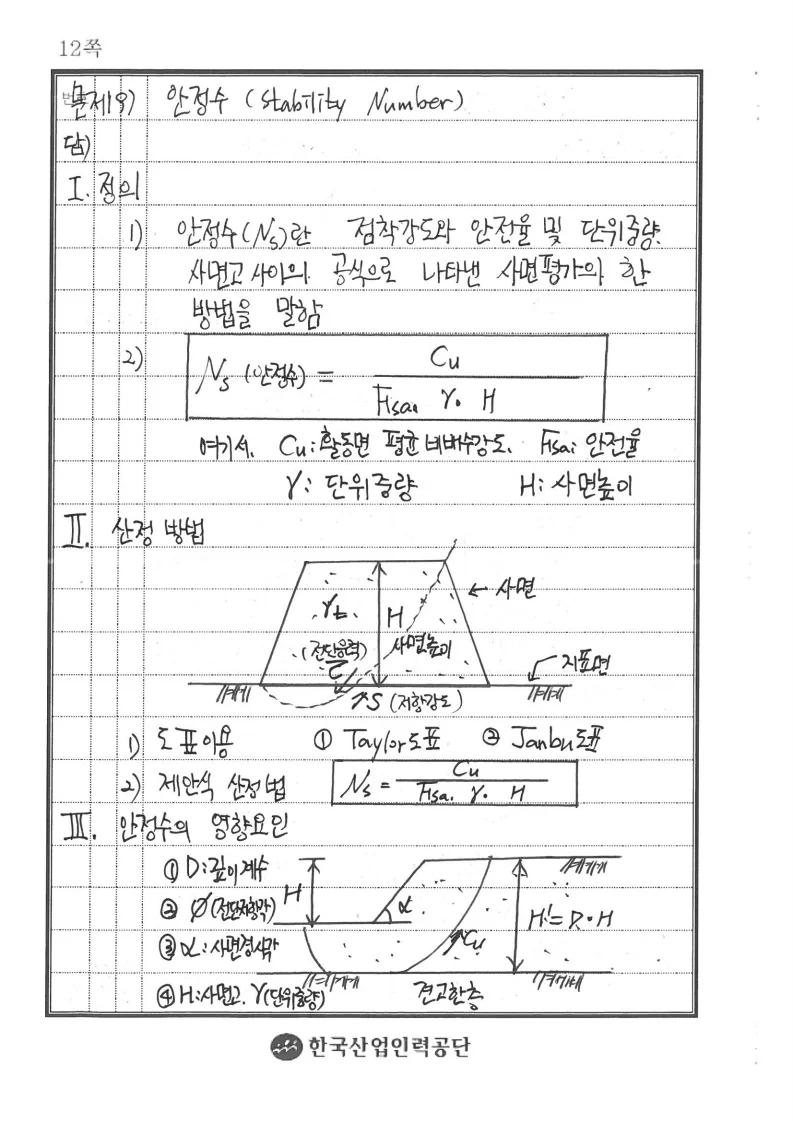 12쪽
문제19) 안정수 (Stability Number)
답)
I. 정의
1) 안정수(Ns)란 점착강도와 안전율 및 단위중량.
사면고 사이의 공식으로 나타낸 사면평가의 한
방법을 말함
2) Ns (안정수) = Cu / Fisa. γ. H
여기서, Cu: 활동면 평균 비배수강도. Fisa: 안전율
γ: 단위중량 H: 사면높이
II. 산정 방법
← 사면
γt
H
(전단응력)
τ
사면높이
지표면
S (저항강도)
1) 도표이용 ① Taylor도표 ② Janbu도표
2) 제안식 산정법 Ns = Cu / Fisa. γ. H
III. 안정수의 영향요인
① D: 깊이계수
② Ø(전단저항각)
③ α: 사면경사각
④ H: 사면고. γ(단위중량)
H
α
Cu
H' = D·H
견고한층
한국산업인력공단